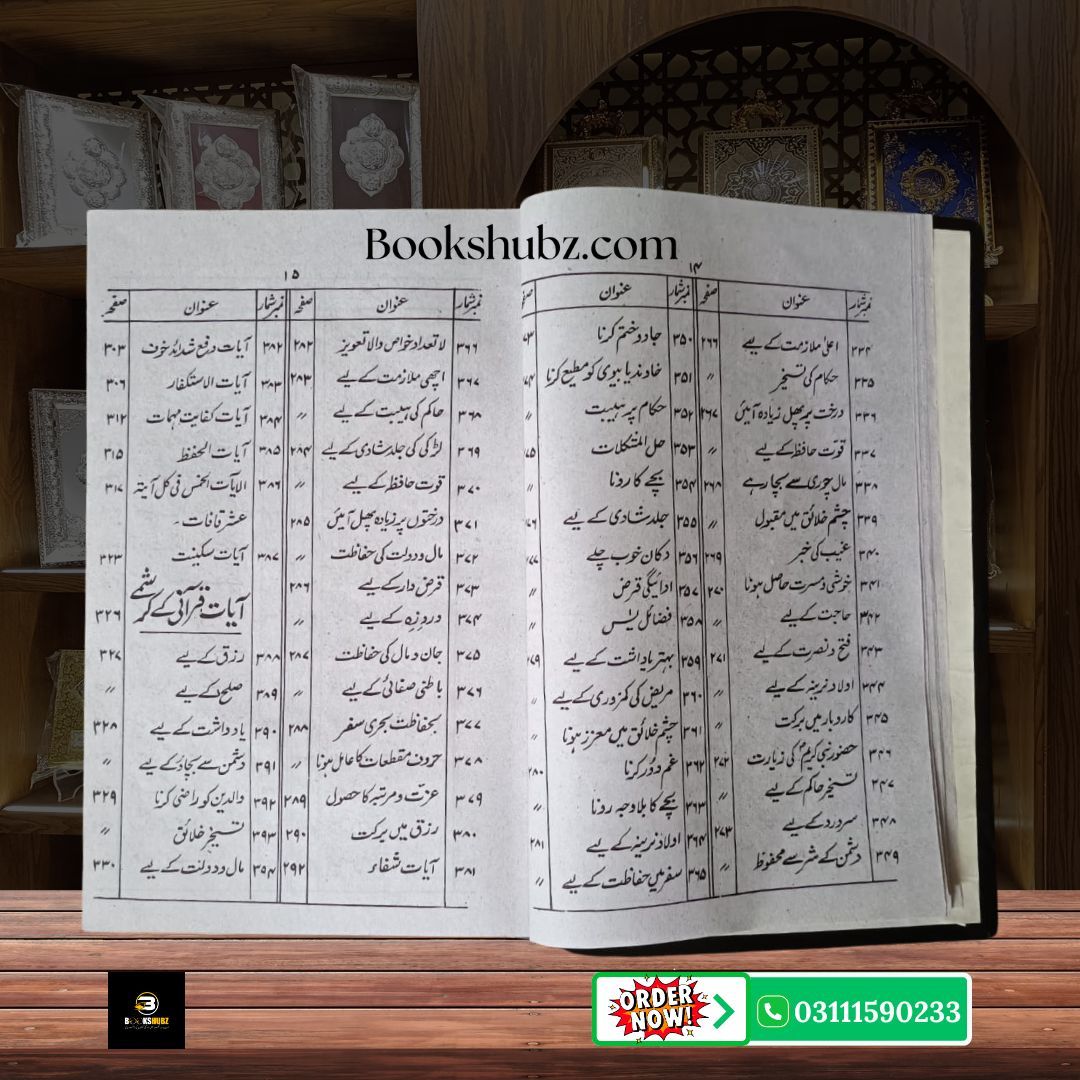 Bookshubz.com
۱۴
نمبرشمار عنوان صفحہ
۳۳۴ اعلیٰ ملازمت کے لیے ۲۶۶
۳۳۵ حکام کی تسخیر 〃
۳۳۶ درخت پر پھل زیادہ آئیں ۲۶۷
۳۳۷ قوت حافظ کے لیے 〃
۳۳۸ مال چوری سے بچا رہے ۲۶۸
۳۳۹ چشم خلائق میں مقبول 〃
۳۴۰ غیب کی خبر ۲۶۹
۳۴۱ خوشی و مسرت حاصل ہونا ۲۷۰
۳۴۲ حاجت کے لیے 〃
۳۴۳ فتح و نصرت کے لیے ۲۷۱
۳۴۴ اولاد نرینہ کے لیے 〃
۳۴۵ کاروبار میں برکت 〃
۳۴۶ حضور نبی کریمؐ کی زیارت ۲۷۲
۳۴۷ تسخیر حاکم کے لیے
۳۴۸ سر درد کے لیے 〃
۳۴۹ دشمن کے شر سے محفوظ ۲۷۳
نمبرشمار عنوان
۳۵۰ جادو ختم کرنا
۳۵۱ خاوند یا بیوی کو مطیع کرنا
۳۵۲ حکام پر ہیبت 〃
۳۵۳ حل المشکلات
۳۵۴ بچے کا رونا 〃
۳۵۵ جلد شادی کے لیے
۳۵۶ دکان خوب چلے
۳۵۷ ادائیگی قرض 〃
۳۵۸ فضائل یٰس 〃
۳۵۹ بہتر یاداشت کے لیے
۳۶۰ مریض کی کمزوری کے لیے 〃
۳۶۱ چشم خلائق میں معزز ہونا 〃
۳۶۲ غم دور کرنا ۲۸۰
۳۶۳ بچے کا بلاوجہ رونا 〃
۳۶۴ اولاد نرینہ کے لیے ۲۸۱
۳۶۵ سفر میں حفاظت کے لیے 〃
۱۵
نمبرشمار عنوان صفحہ
۳۶۶ لاتعداد خواص والا تعویز ۲۸۲
۳۶۷ اچھی ملازمت کے لیے ۲۸۳
۳۶۸ حاکم کی ہیبت کے لیے 〃
۳۶۹ لڑکی کی جلد شادی کے لیے ۲۸۴
۳۷۰ قوت حافظ کے لیے 〃
۳۷۱ درختوں پر زیادہ پھل آئیں ۲۸۵
۳۷۲ مال و دولت کی حفاظت 〃
۳۷۳ قرض دار کے لیے ۲۸۶
۳۷۴ درد زہ کے لیے 〃
۳۷۵ جان و مال کی حفاظت ۲۸۷
۳۷۶ باطنی صفائی کے لیے 〃
۳۷۷ بحفاظت بحری سفر ۲۸۸
۳۷۸ حروف مقطعات کا عامل ہونا 〃
۳۷۹ عزت و مرتبہ کا حصول ۲۸۹
۳۸۰ رزق میں برکت ۲۹۰
۳۸۱ آیات شفاء ۲۹۲
نمبرشمار عنوان صفحہ
۳۸۲ آیات دفع شدائد خوف ۳۰۳
۳۸۳ آیات الاستکفار ۳۰۶
۳۸۴ آیات کفایت مہمات ۳۱۲
۳۸۵ آیات الحفظ ۳۱۵
۳۸۶ الآیات الخمس فی کل آیتہ ۳۱۷
عشر قافات۔
۳۸۷ آیات سکینت ۳۲۳
آیات قرآنی کے کرشمے ۳۲۶
۳۸۸ رزق کے لیے ۳۲۷
۳۸۹ صلح کے لیے 〃
۳۹۰ یادداشت کے لیے ۳۲۸
۳۹۱ دشمن سے بچاؤ کے لیے 〃
۳۹۲ والدین کو راضی کرنا ۳۲۹
۳۹۳ تسخیر خلائق 〃
۳۵۴ مال و دولت کے لیے ۳۳۰
BOOKSHUBZ
ORDER NOW!
03111590233